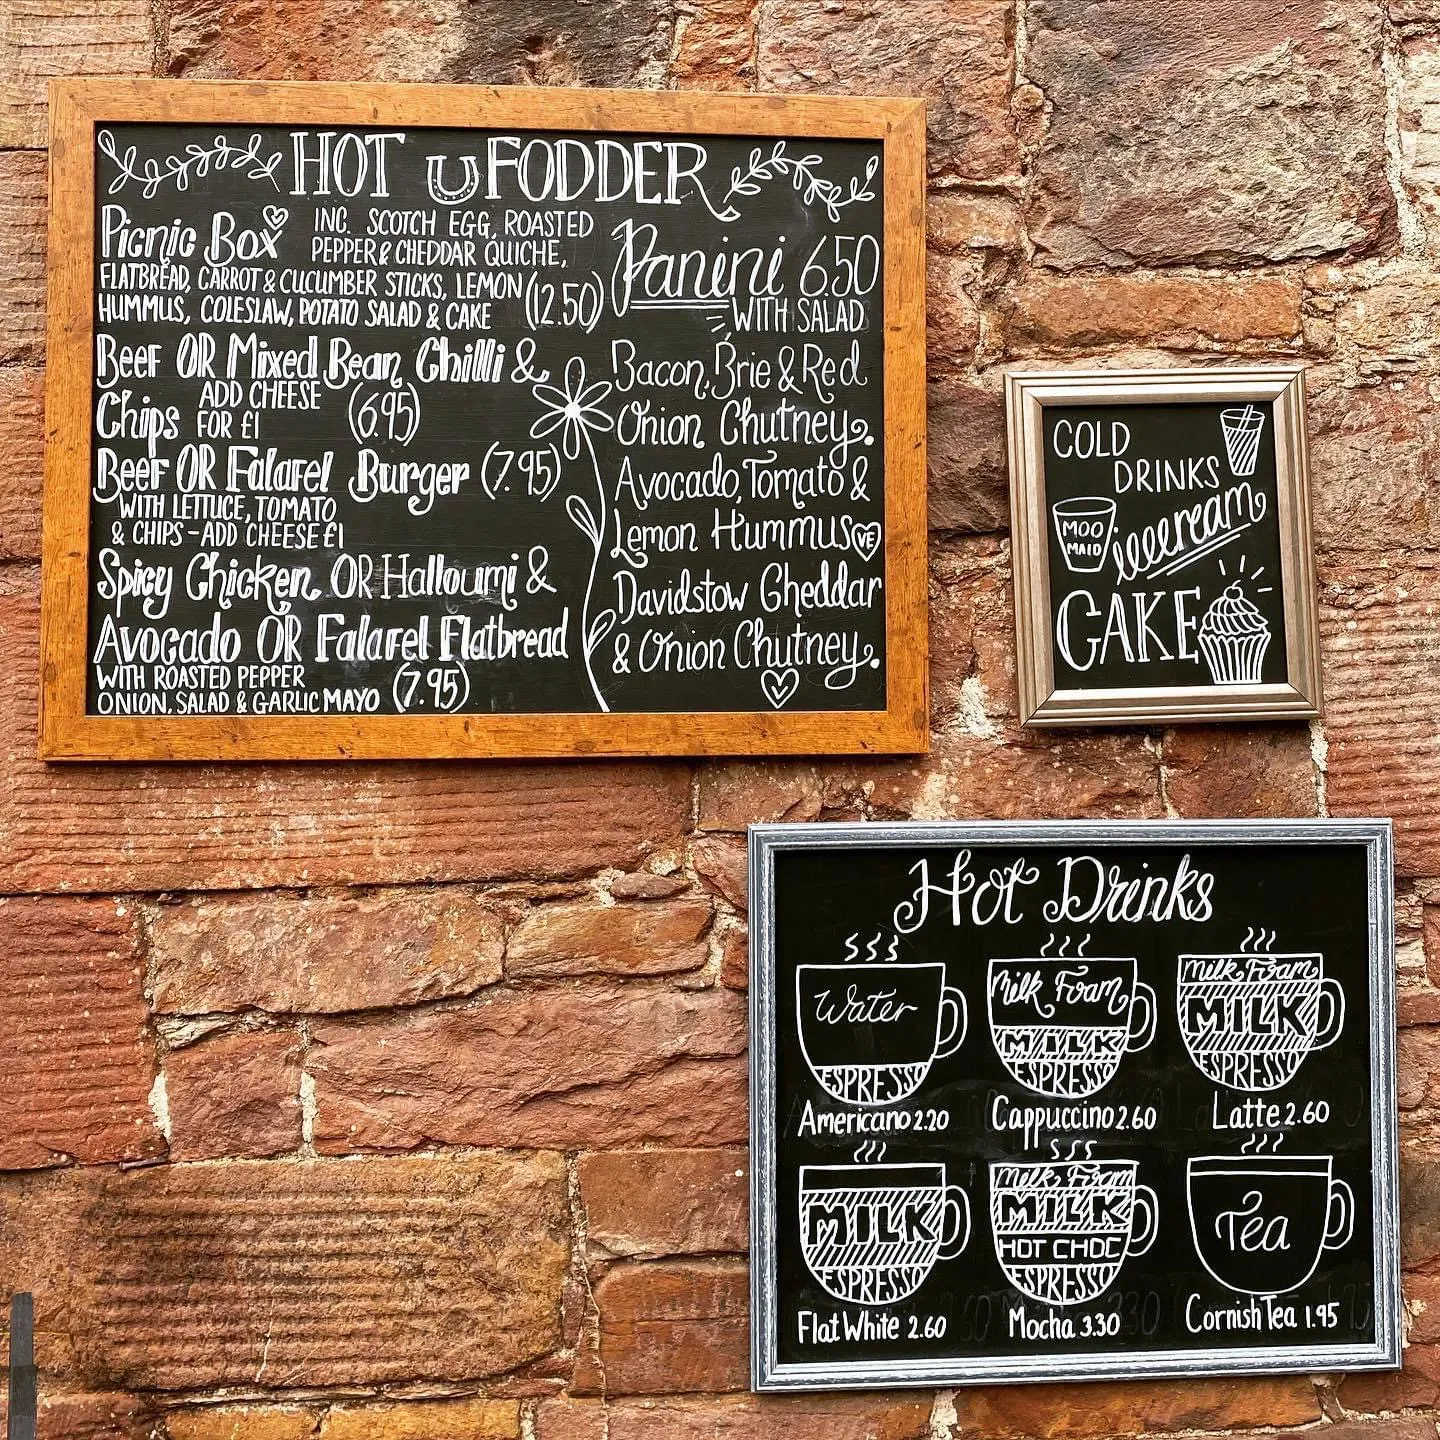 HOT FODDER
Picnic Box INC. SCOTCH EGG, ROASTED
PEPPER & CHEDDAR QUICHE,
FLATBREAD, CARROT & CUCUMBER STICKS, LEMON
HUMMUS, COLESLAW, POTATO SALAD & CAKE (12.50)
Beef OR Mixed Bean Chilli &
Chips ADD CHEESE
FOR £1 (6.95)
Beef OR Falafel Burger (7.95)
WITH LETTUCE, TOMATO
& CHIPS - ADD CHEESE £1
Spicy Chicken OR Halloumi &
Avocado OR Falafel Flatbread
WITH ROASTED PEPPER
ONION, SALAD & GARLIC MAYO (7.95)
Panini 6.50
WITH SALAD
Bacon, Brie & Red
Onion Chutney.
Avocado, Tomato &
Lemon Hummus VE
Davidstow Cheddar
& Onion Chutney.
V
COLD
DRINKS
MOO
MAID
icecream
CAKE
Hot Drinks
Water
ESPRESSO
Americano 2.20
Milk Foam
MILK
ESPRESSO
Cappuccino 2.60
Milk Foam
MILK
ESPRESSO
Latte 2.60
MILK
ESPRESSO
Flat White 2.60
Milk Foam
MILK
HOT CHOC
ESPRESSO
Mocha 3.30
Tea
Cornish Tea 1.95